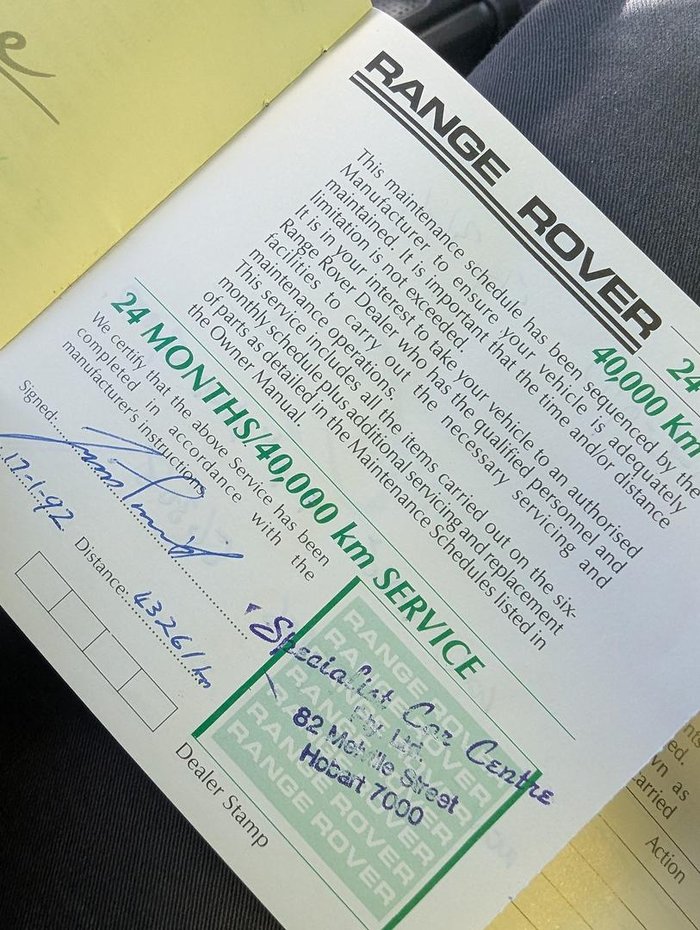 RANGE ROVER
24
40,000 Km
This maintenance schedule has been sequenced by the
Manufacturer to ensure your vehicle is adequately
maintained. It is important that the time and/or distance
limitation is not exceeded.
It is in your interest to take your vehicle to an authorised
Range Rover Dealer who has the qualified personnel and
facilities to carry out the necessary servicing and
maintenance operations.
This service includes all the items carried out on the six-
monthly schedule plus additional servicing and replacement
of parts as detailed in the Maintenance Schedules listed in
the Owner Manual.
24 MONTHS/40,000 km SERVICE
We certify that the above Service has been
completed in accordance with the
manufacturer's instructions.
Signed
17-1-92
Distance 43261 km
Specialist Car Centre
Pty. Ltd.
82 Melville Street
Hobart 7000
RANGE ROVER
RANGE ROVER
RANGE ROVER
RANGE ROVER
RANGE ROVER
RANGE ROVER
Dealer Stamp
ed.
vn as
arried
Action